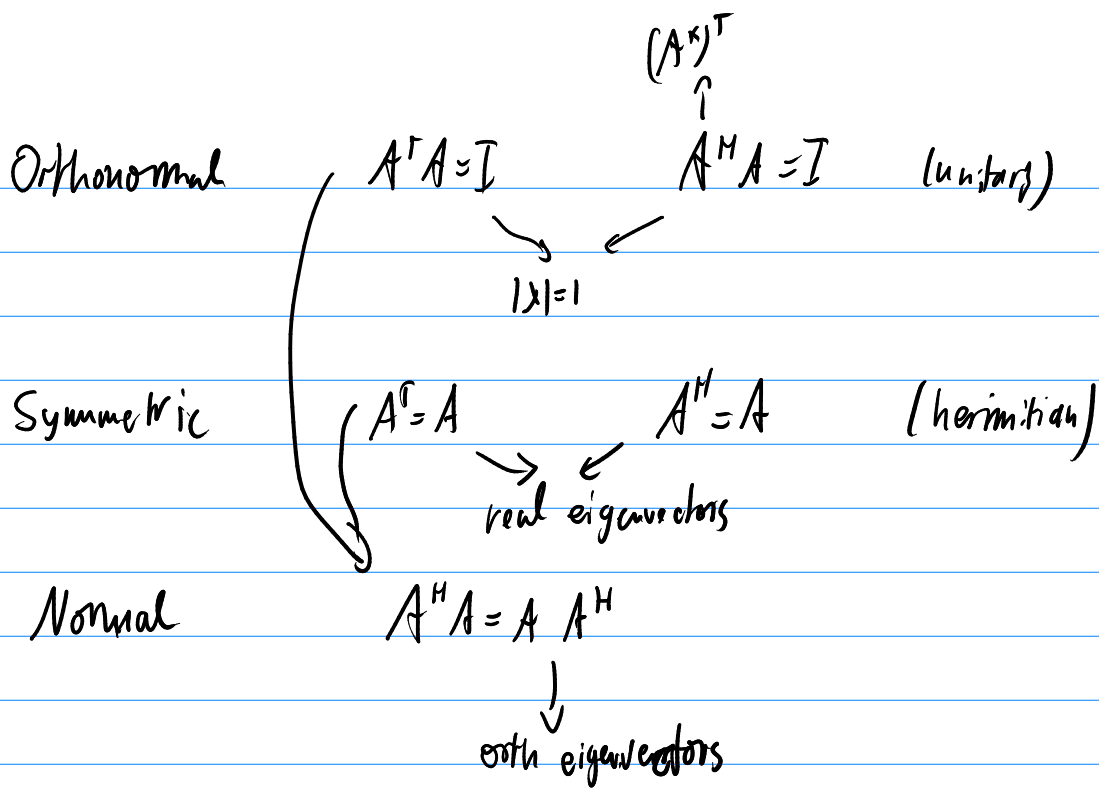 (A*)ᵀ
Orthonormal AᵀA=I AᴴA=I (unitary)
|λ|=1
Symmetric Aᵀ=A Aᴴ=A (herimitian)
real eigenvectors
Normal AᴴA=A Aᴴ
orth eigenvectors